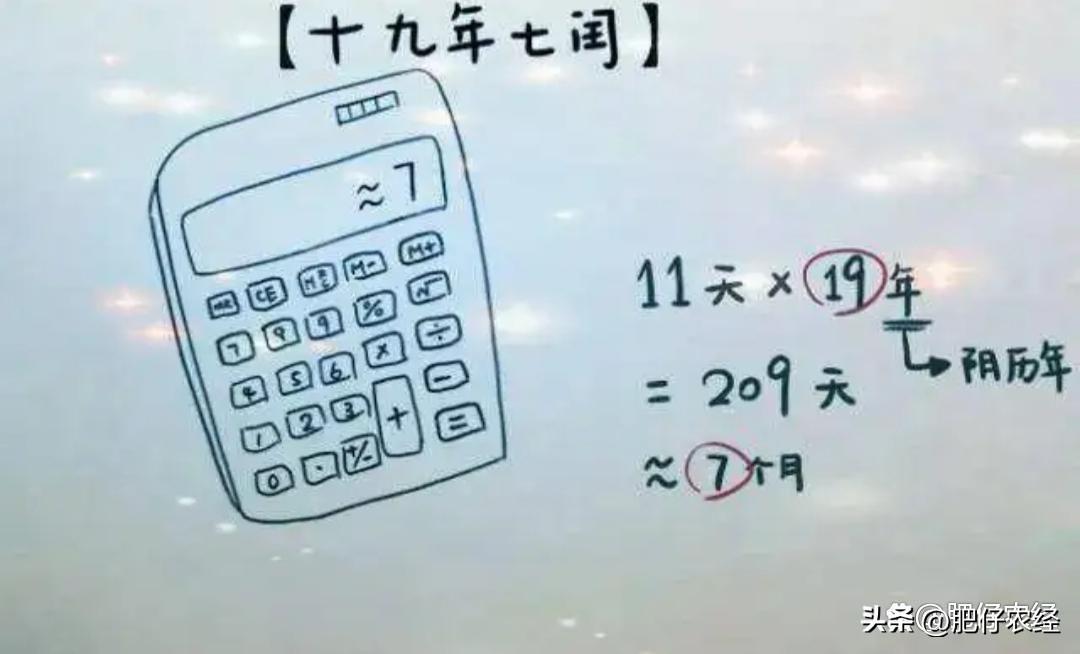 【十九年七闰】
≈7
MR CE M- M+
7 8 9 % √
4 5 6 × ÷
1 2 3 + −
0 . +/- =
11天×19年
阴历年
=209天
≈7个月
头条 @肥仔农经